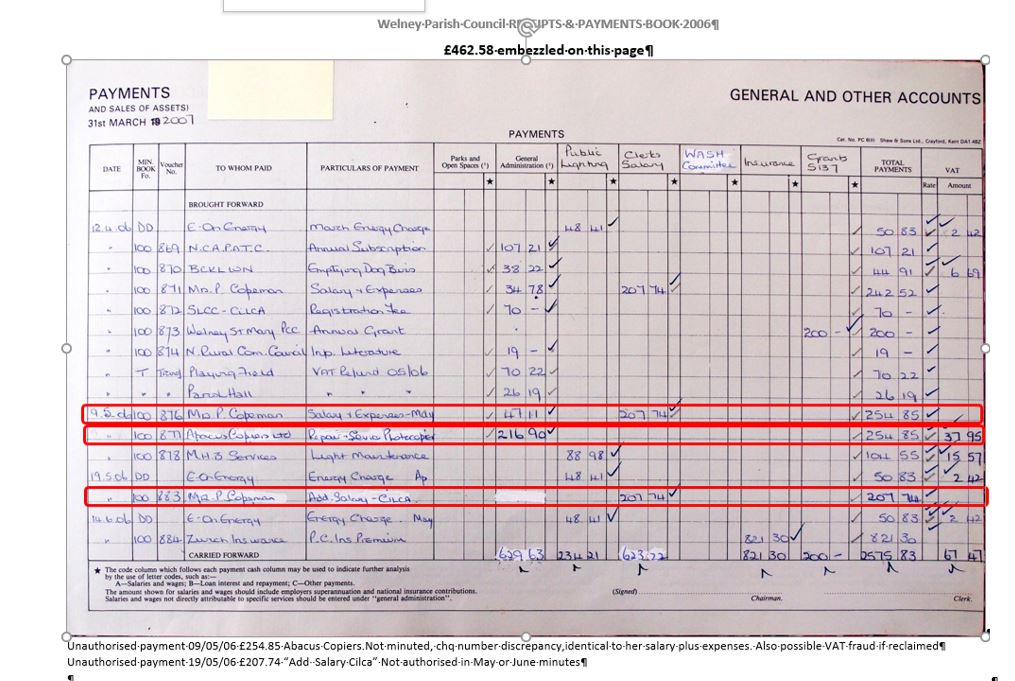 Welney Parish Council RECEIPTS & PAYMENTS BOOK 2006¶
£462.58 embezzled on this page¶
PAYMENTS
AND SALES OF ASSETS)
31st MARCH 19 2007
GENERAL AND OTHER ACCOUNTS
PAYMENTS
Shaw & Sons Ltd., Crayford, Kent DA1 4BZ
DATE MIN. BOOK Fo. Voucher No. TO WHOM PAID PARTICULARS OF PAYMENT Parks and Open Spaces (¹) General Administration (¹) Public Lighting Clerks Salary WASH Committee Insurance Grants S137 TOTAL PAYMENTS VAT
★ ★ ★ ★ ★ ★ ★ Rate Amount
BROUGHT FORWARD
12.4.06 DD E-On Energy March Energy Charge 48 41 50 83 2 42
" 100 869 N.C.A.P.A.T.C. Annual Subscription 107 21 107 21
" 100 870 BCKLWN Emptying Dog Bins 38 22 44 91 6 69
" 100 871 Mrs. P. Copeman Salary + Expenses 34 78 207 74 242 52
" 100 872 SLCC - CiLCA Registration Fee 70 - 70 -
" 100 873 Welney St Mary PCC Annual Grant 200 - 200 -
" 100 874 N. Rural Com. Council Inp. Literature 19 - 19 -
" T Playing Field VAT Refund 05/06 70 22 70 22
" " Parish Hall " " 26 19 26 19
9.5.06 100 876 Mrs P. Copeman Salary + Expenses - May 47 11 207 74 254 85
" 100 877 Abacus Copiers Ltd Repair - Photocopier 216 90 254 85 37 95
" 100 878 M.H.B Services Light Maintenance 88 98 104 55 15 57
19.5.06 DD E-On Energy Energy Charge Ap 48 41 50 83 2 42
" 100 883 Mrs P. Copeman Add. Salary - CiLCA. 207 74 207 74
14.6.06 DD E-On Energy Energy Charge. May 48 41 50 83 2 42
" 100 884 Zurich Insurance P.C. Ins Premium 821 30 821 30
CARRIED FORWARD 629 63 234 21 623 22 821 30 200 - 2575 83 67 47
★ The code column which follows each payment cash column may be used to indicate further analysis
by the use of letter codes, such as:—
A—Salaries and wages; B—Loan interest and repayment; C—Other payments.
The amount shown for salaries and wages should include employers superannuation and national insurance contributions.
Salaries and wages not directly attributable to specific services should be entered under "general administration".
(Signed)
Chairman. Clerk.
Unauthorised payment 09/05/06 £254.85 Abacus Copiers. Not minuted, chq number discrepancy, identical to her salary plus expenses. Also possible VAT fraud if reclaimed¶
Unauthorised payment 19/05/06 £207.74 "Add Salary Cilca" Not authorised in May or June minutes¶
¶